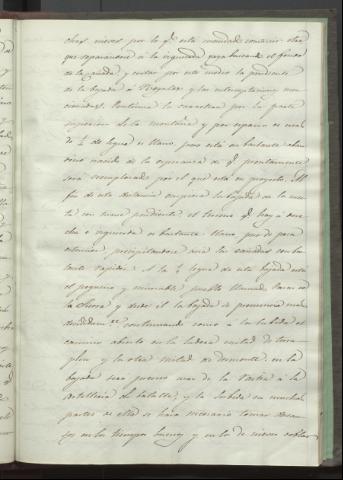 chas nieves por lo q.e esta mandado construir otra
que separandose a la izquierda vaya buscando el fondo
de la cañada y evitar por este medio la pendiente
de la bajada a
Continua la carretera por la parte
superior de la montaña y por espacio es mal
de ¼ de legua es llano, pero está en bastante aban
dono nacido de la esperanza de q.e prontamente
será reemplazado por el que está en proyecto. Al
fin de esta distancia empieza la bajada de la cues
ta con suave pendiente el terreno q.e hay a dere
cha e izquierda es bastante llano pero de poca
estension precipitandose acia las cañadas con bas
tante rapidez. A la ½ legua de esta bajada está
el pequeño y miserable pueblo llamado
la Sierra y desde él la bajada se pronuncia mas
continuando como a la subida el
camino abierto en la ladera mitad de terra
plen y la otra mitad de desmonte, en la
bajada sera preciso usar de la rastra a la
Artilleria de batalla, y la subida en muchas
partes de ella se hará necesario tomar
en los tiempos buenos y en los de nieves doblar